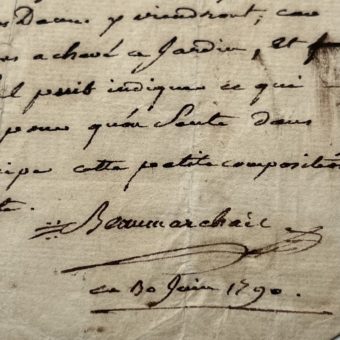 Dames y viendront, car
achevé ce Jardin, et
peut indiquer ce qui
pour qu'on Sente dans
cette petite composition
Beaumarchais
ce 30 Juin 1790.